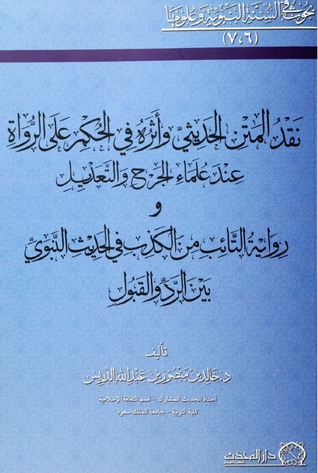 بحوث في السنة النبوية وعلومها
(٧،٦)
نقد المتن الحديثي وأثره في الحكم على الرواة
عند علماء الجرح والتعديل
و
رواية التائب من الكذب في الحديث النبوي
بين الرد والقبول
تأليف
د. خالد بن منصور بن عبد الله الدريس
أستاذ الحديث المشارك - قسم الثقافة الإسلامية
كلية التربية - جامعة الملك سعود
دار المحدث